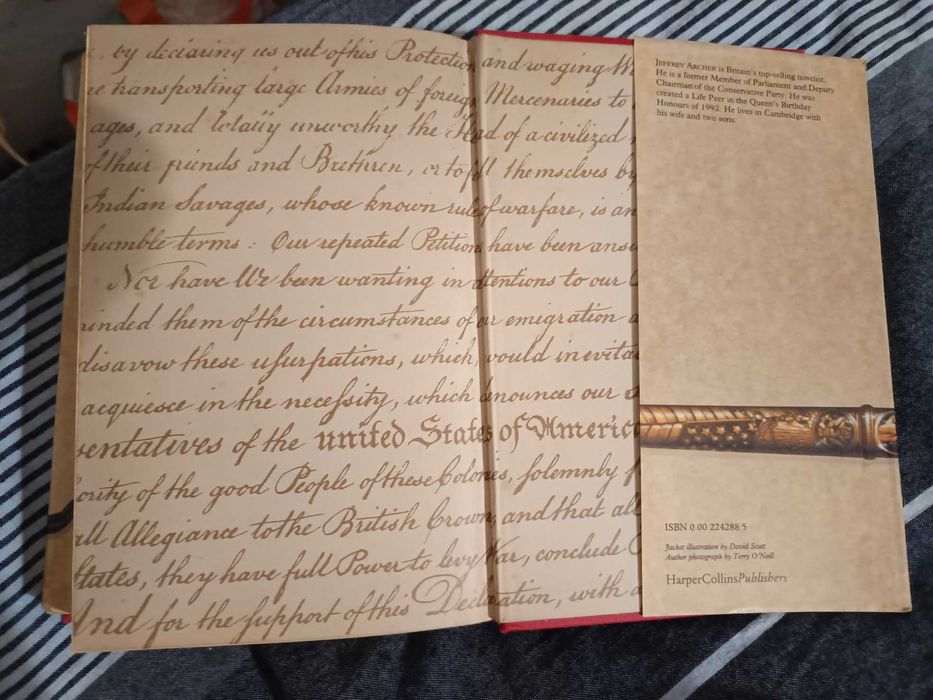 by declaring us out of his Protection and waging
transporting large Armies of foreign Mercenaries to
ages, and totally unworthy the Head of a civilized
of their friends and Brethren, or to fall themselves by
Indian Savages, whose known rule of warfare, is an
humble terms : Our repeated Petitions have been answ
Nor have We been wanting in attentions to our
inded them of the circumstances of our emigration a
disavow these usurpations, which would inevita
acquiesce in the necessity, which denounces our
sentatives of the united States of America
ority of the good People of these Colonies, solemnly p
all Allegiance to the British Crown, and that all
States, they have full Power to levy War, conclude
And for the support of this Declaration, with a
JEFFREY ARCHER is Britain's top-selling novelist.
He is a former Member of Parliament and Deputy
Chairman of the Conservative Party. He was
created a Life Peer in the Queen's Birthday
Honours of 1992. He lives in Cambridge with
his wife and two sons.
ISBN 0 00 224288 5
Jacket illustration by David Scutt
Author photograph by Terry O'Neill
HarperCollinsPublishers